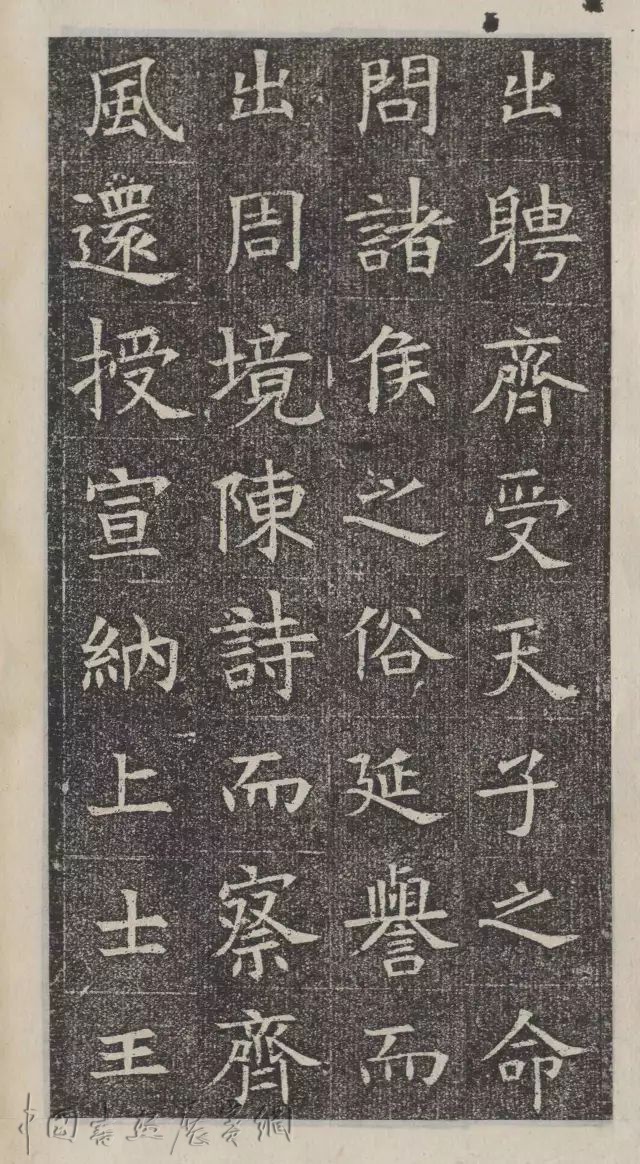 出聘齊受天子之命
問諸侯之俗延譽而
出周境陳詩而察齊
風還授宣納上士王
中国書法展賽網